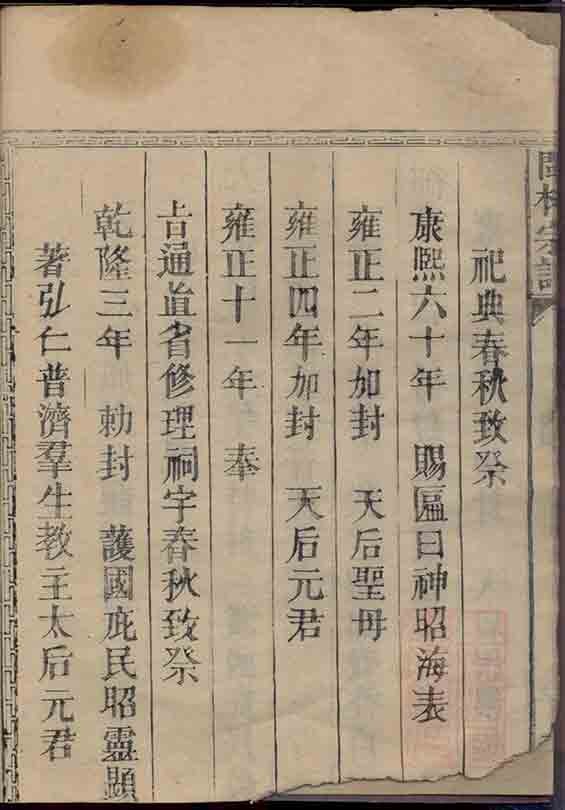 祀典春秋致祭
康熙六十年 賜匾曰神昭海表
雍正二年加封 天后聖母
雍正四年加封 天后元君
雍正十一年 奉
吉通直省修理祠宇春秋致祭
乾隆三年 勅封 護國庇民昭靈顯
著弘仁普濟羣生教主太后元君